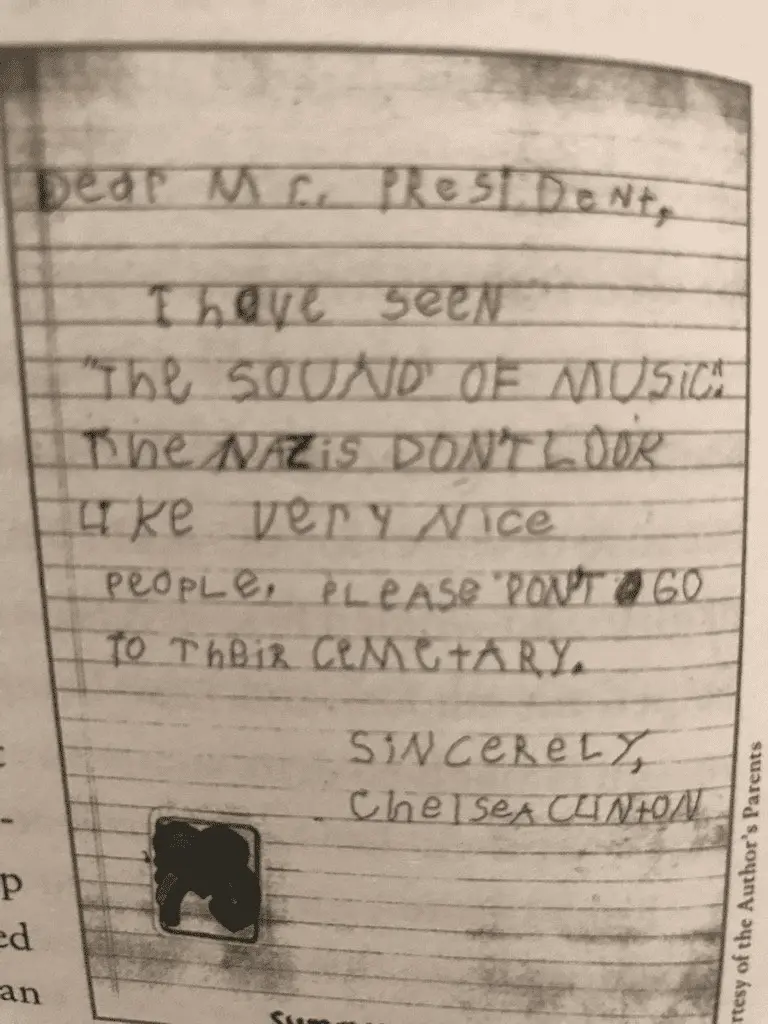 Dear Mr. President,
I have seen
"The SOUND OF MUSIC."
The NAZis DON'T LOOK
Like very Nice
PeOPLe. PLeASe DON'T GO
TO TheiR CeMetARY.
SiNCeReLY,
ChelseA CLiNtON
p
ed
an
rtesy of the Author's Parents